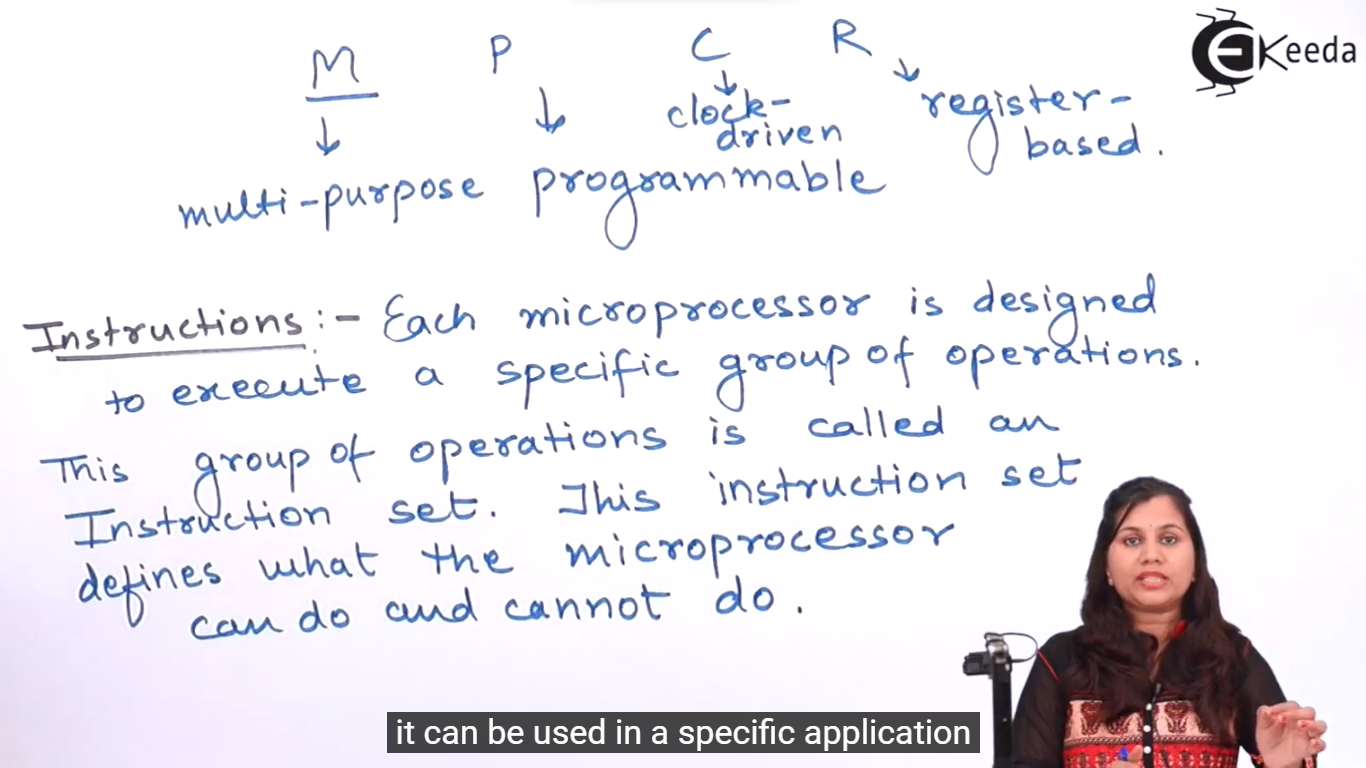 M P C R
EKeeda
clock-
driven
register-
based.
multi-purpose programmable
Instructions :- Each microprocessor is designed
to execute a specific group of operations.
This group of operations is called an
Instruction set. This instruction set
defines what the microprocessor
can do and cannot do.
it can be used in a specific application